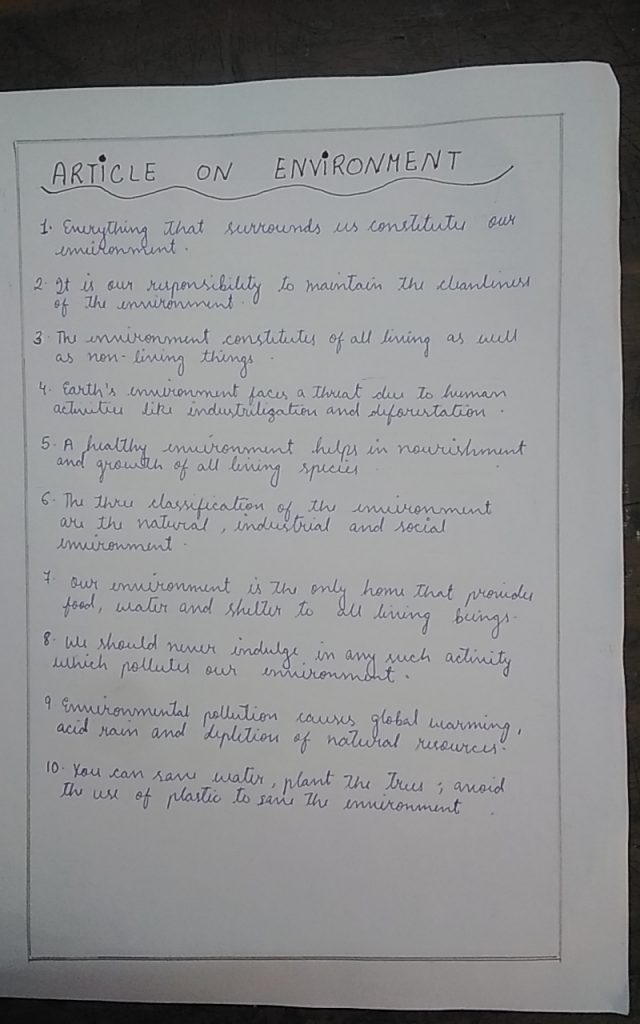 ARTICLE ON ENVIRONMENT
1. Everything that surrounds us constitutes our
environment.
2. It is our responsibility to maintain the cleanliness
of the environment.
3. The environment constitutes of all living as well
as non-living things.
4. Earth's environment faces a threat due to human
activities like industriligation and deforestation.
5. A healthy environment helps in nourishment
and growth of all living species.
6. The three classification of the environment
are the natural, industrial and social
environment.
7. Our environment is the only home that provides
food, water and shelter to all living beings.
8. We should never indulge in any such activity
which pollutes our environment.
9 Environmental pollution causes global warming,
acid rain and depletion of natural resources.
10. You can save water, plant the trees; avoid
the use of plastic to save the environment.